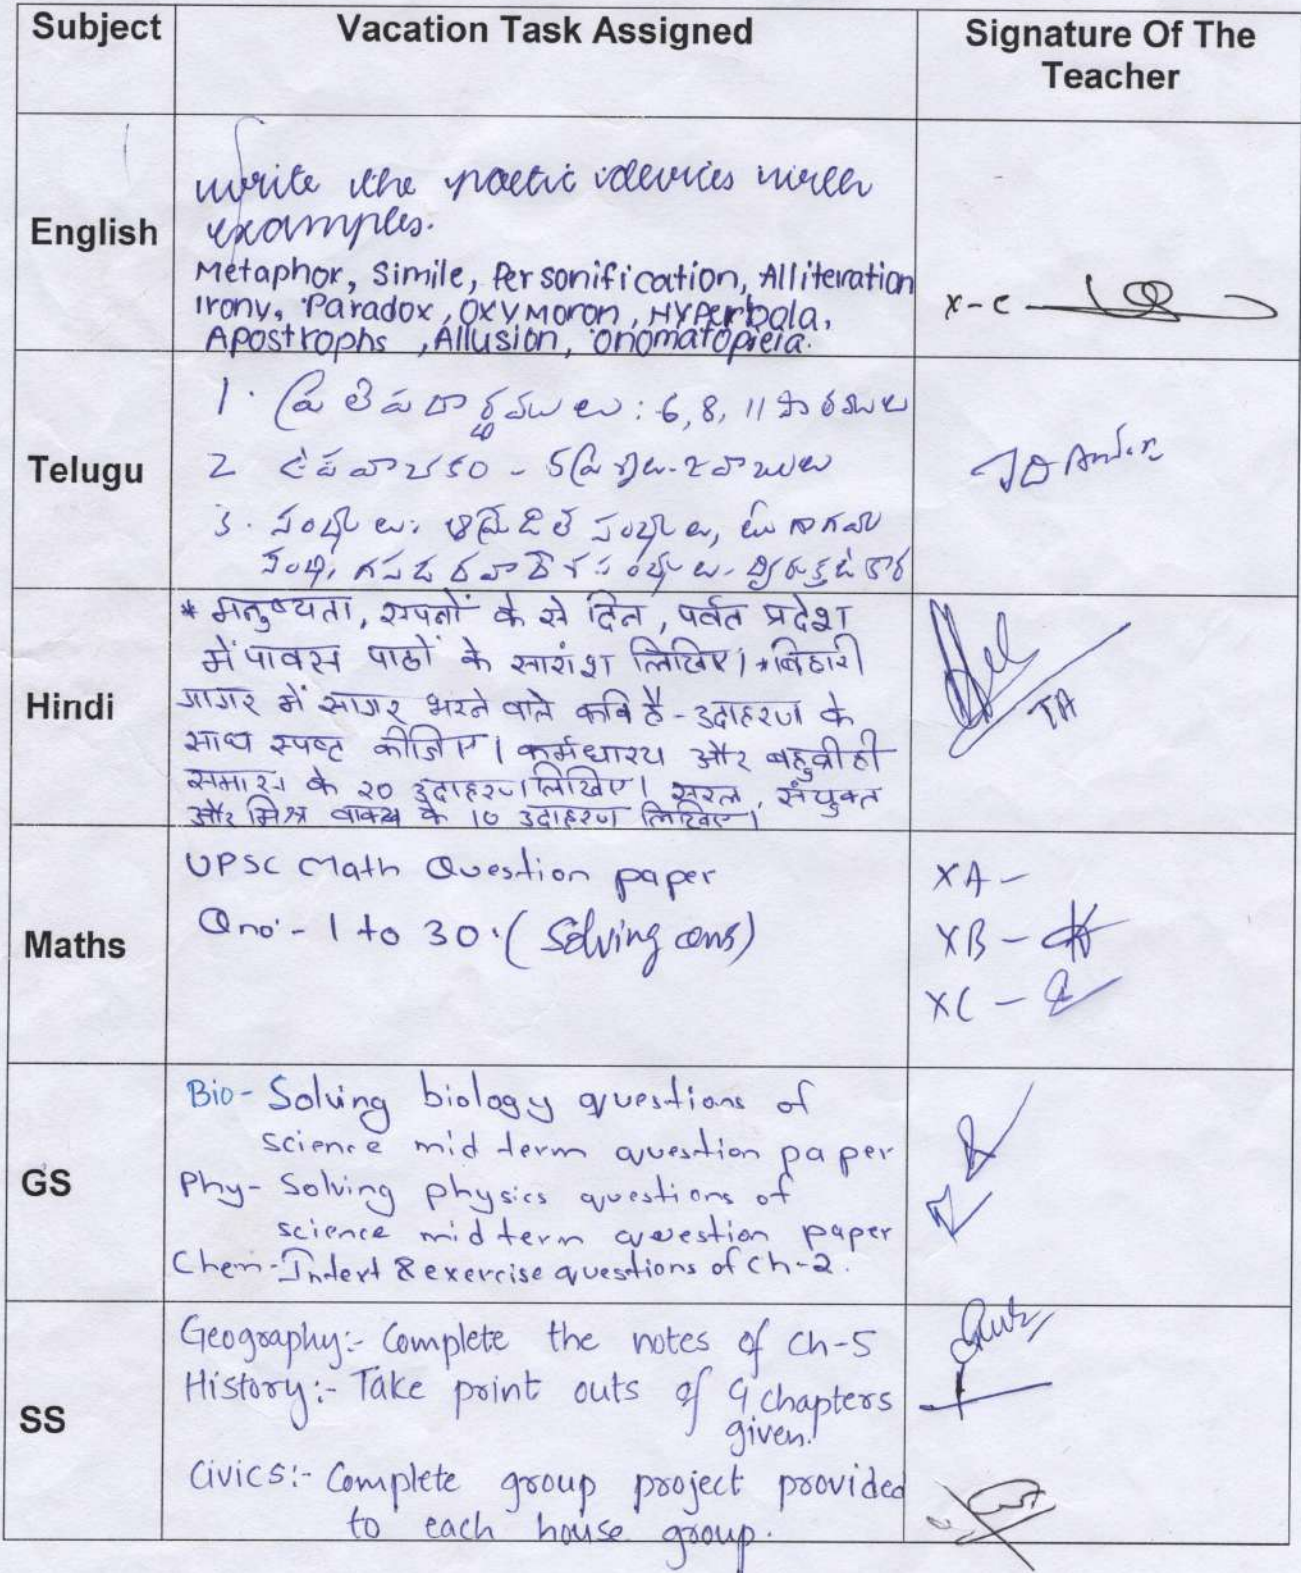 Subject Vacation Task Assigned Signature Of The
Teacher
English
write the poetic devices with
examples.
Metaphor, Simile, Personification, Alliteration
Irony, Paradox, OXYMORON, HYPerbola,
Apostrophs, Allusion, Onomatopieia.
X-C
Telugu
1. ప్రతిపదార్థములు: 6, 8, 11
2 ఉపవాచకం - 5 ప్రశ్నలు - జవాబులు
3. సంధులు: ఆమ్రేడిత సంధులు,
సంధి, గసడదవాదేశ సంధులు.
Hindi
* मनुष्यता, सपनों के से दिन, पर्वत प्रदेश
में पावस पाठों के सारांश लिखिए। * बिहारी
गागर में सागर भरने वाले कवि है - उदाहरण के
साथ स्पष्ट कीजिए। कर्मधारय और बहुव्रीही
समास के २० उदाहरण लिखिए। सरल, संयुक्त
और मिश्र वाक्य के 10 उदाहरण लिखिए।
Maths
UPSC Math Question paper
Qno - 1 to 30. (Solving ans)
XA -
XB -
XC -
GS
Bio - Solving biology questions of
science mid term question paper
Phy - Solving physics questions of
science mid term question paper
Chem - Intext & exercise questions of ch-2.
SS
Geography:- Complete the notes of Ch-5
History:- Take print outs of 9 chapters
given.
Civics:- Complete group project provided
to each house group.